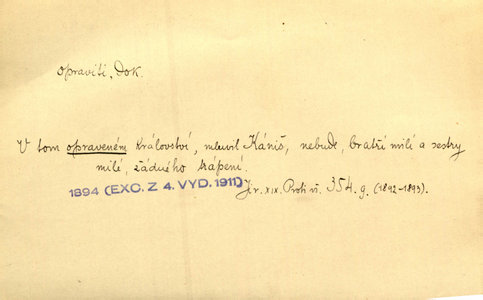 opraviti, dok.
V tom opraveném království, mluvil Kániš, nebude, bratří milí a sestry
milé, žádného trápení.
1894 (EXC. Z 4. VYD. 1911)
Jr. XIX. Proti vš. 354. g. (1892-1893).